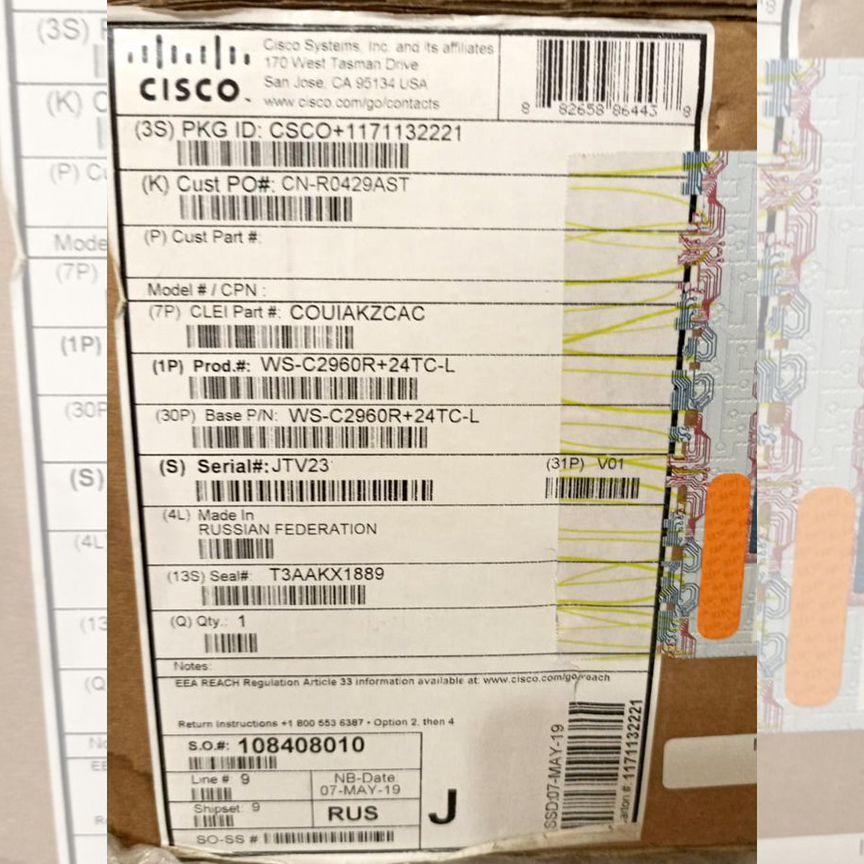 Cisco Systems, Inc. and its affiliates
170 West Tasman Drive
San Jose, CA 95134 USA
www.cisco.com/go/contacts
CISCO
8 82658 86443 8
(3S) PKG ID: CSCO+1171132221
(K) Cust PO#: CN-R0429AST
(P) Cust Part #:
Model # / CPN :
(7P) CLEI Part #: COUIAKZCAC
(1P) Prod.#: WS-C2960R+24TC-L
(30P) Base P/N: WS-C2960R+24TC-L
(S) Serial#:JTV23
(31P) V01
(4L) Made In
RUSSIAN FEDERATION
(13S) Seal#: T3AAKX1889
(Q) Qty.: 1
Notes:
EEA REACH Regulation Article 33 information available at: www.cisco.com/go/reach
Return Instructions +1 800 553 6387 • Option 2, then 4
S.O.#: 108408010
Line # 9
NB-Date
07-MAY-19
Shipset: 9
RUS
J
SO-SS #
SSD:07-MAY-19
Carton #: 1171132221